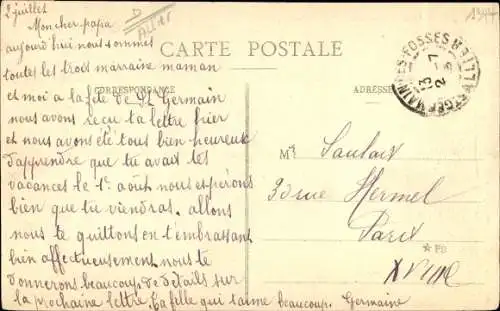 2 juillet
Mon cher papa
aujourd'hui nous sommes
toutes les trois marraine maman
et moi a la fete de St Germain
nous avons reçu ta lettre hier
et nous avons été tous bien heureux
d'apprendre que tu avait tes
vacances le 1er août nous espérons
bien que tu viendras. allons
nous te quittons en t'embrassant
bien affectueusement nous te
donnerons beaucoup de details sur
la prochaine lettre. Ta fille qui t'aime beaucoup. Germaine
D
Allier
CARTE POSTALE
CORRESPONDANCE
ADRESSE
ST GERMAIN-DES-FOSSES ALLIER
13
-7
2
Mr
30 rue Hermel
Paris
★ PD
XVIIIe